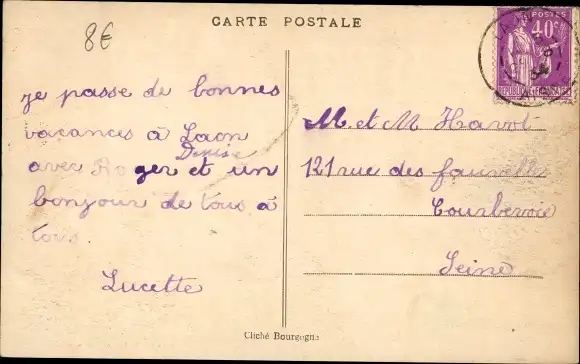 CARTE POSTALE
8€
POSTES
40c
je passe de bonnes
vacances à Laon
Denise
avec Roger et un
bonjour de tous à
tous
Lucette
M. et M Havot
121 rue des fauvelles
Courbevoie
Seine
Cliché Bourgogne